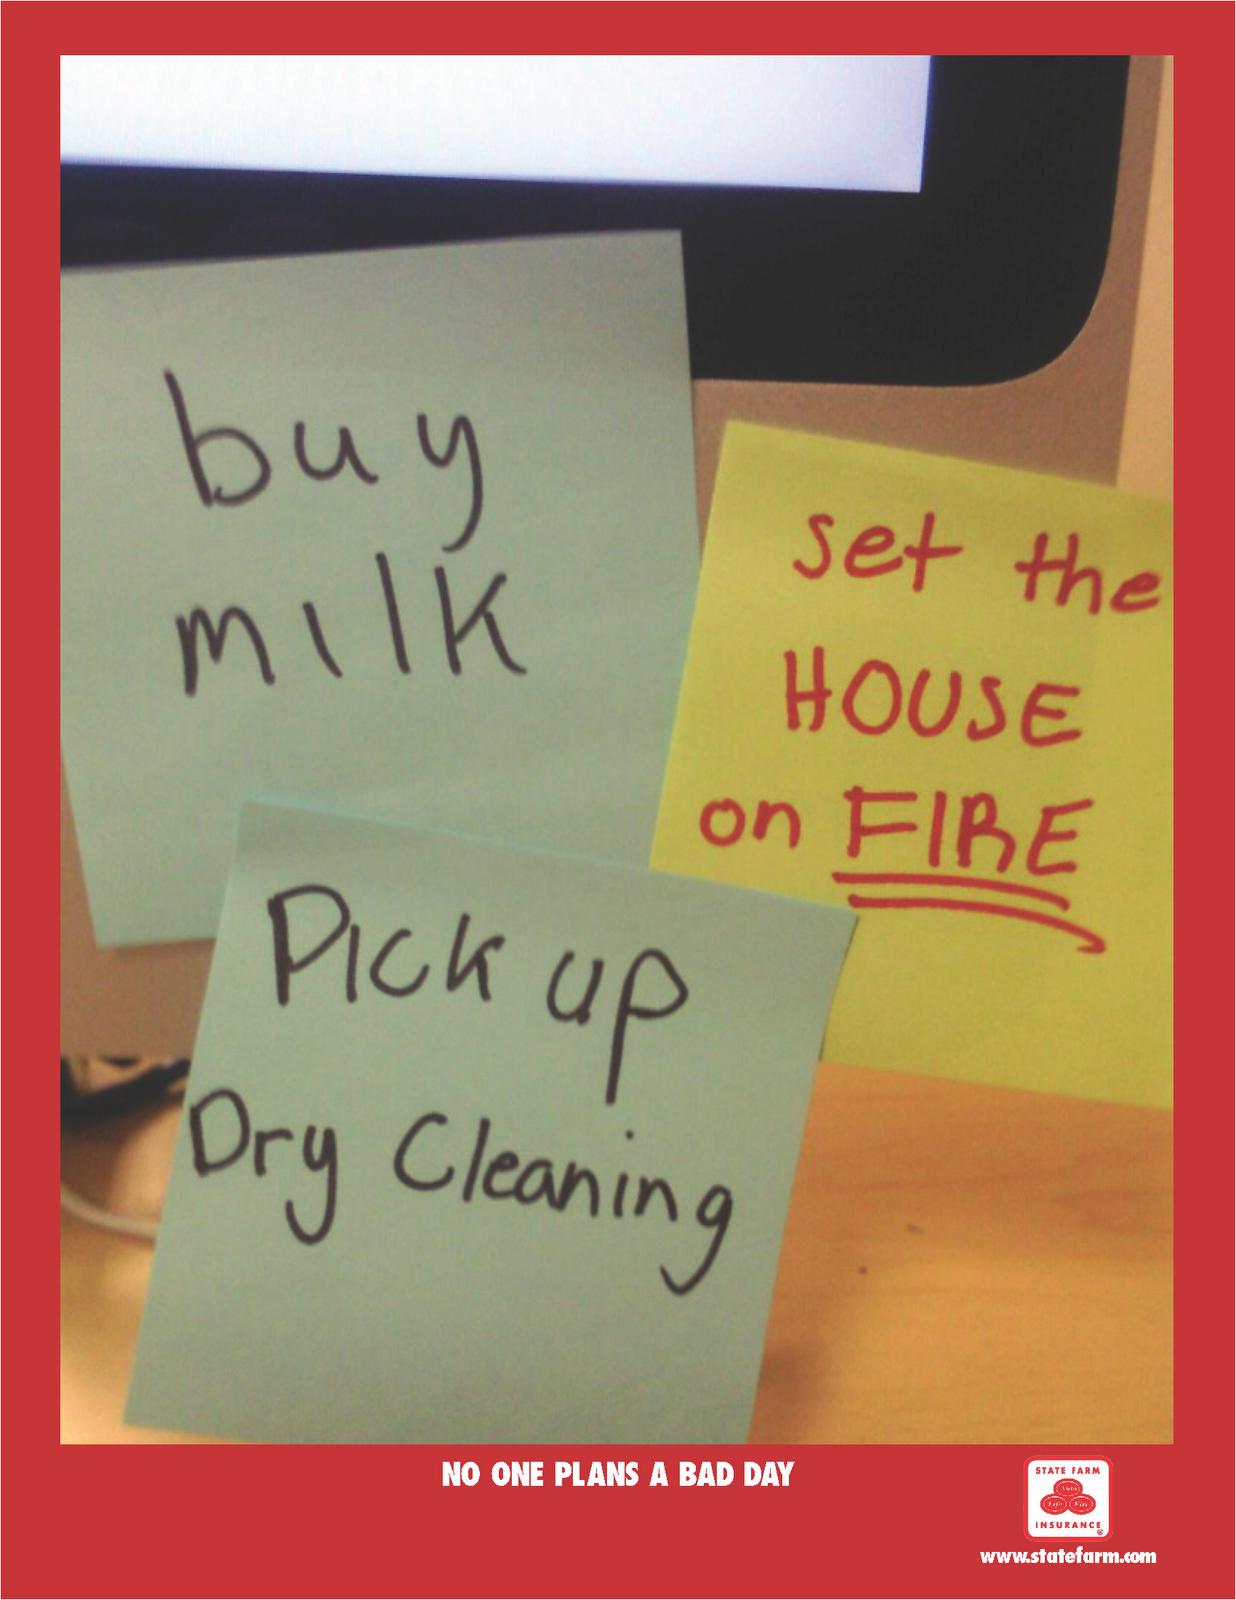 buy
milk
set the
HOUSE
on FIRE
Pick up
Dry Cleaning
NO ONE PLANS A BAD DAY
STATE FARM
Auto
Life Fire
INSURANCE
®
www.statefarm.com